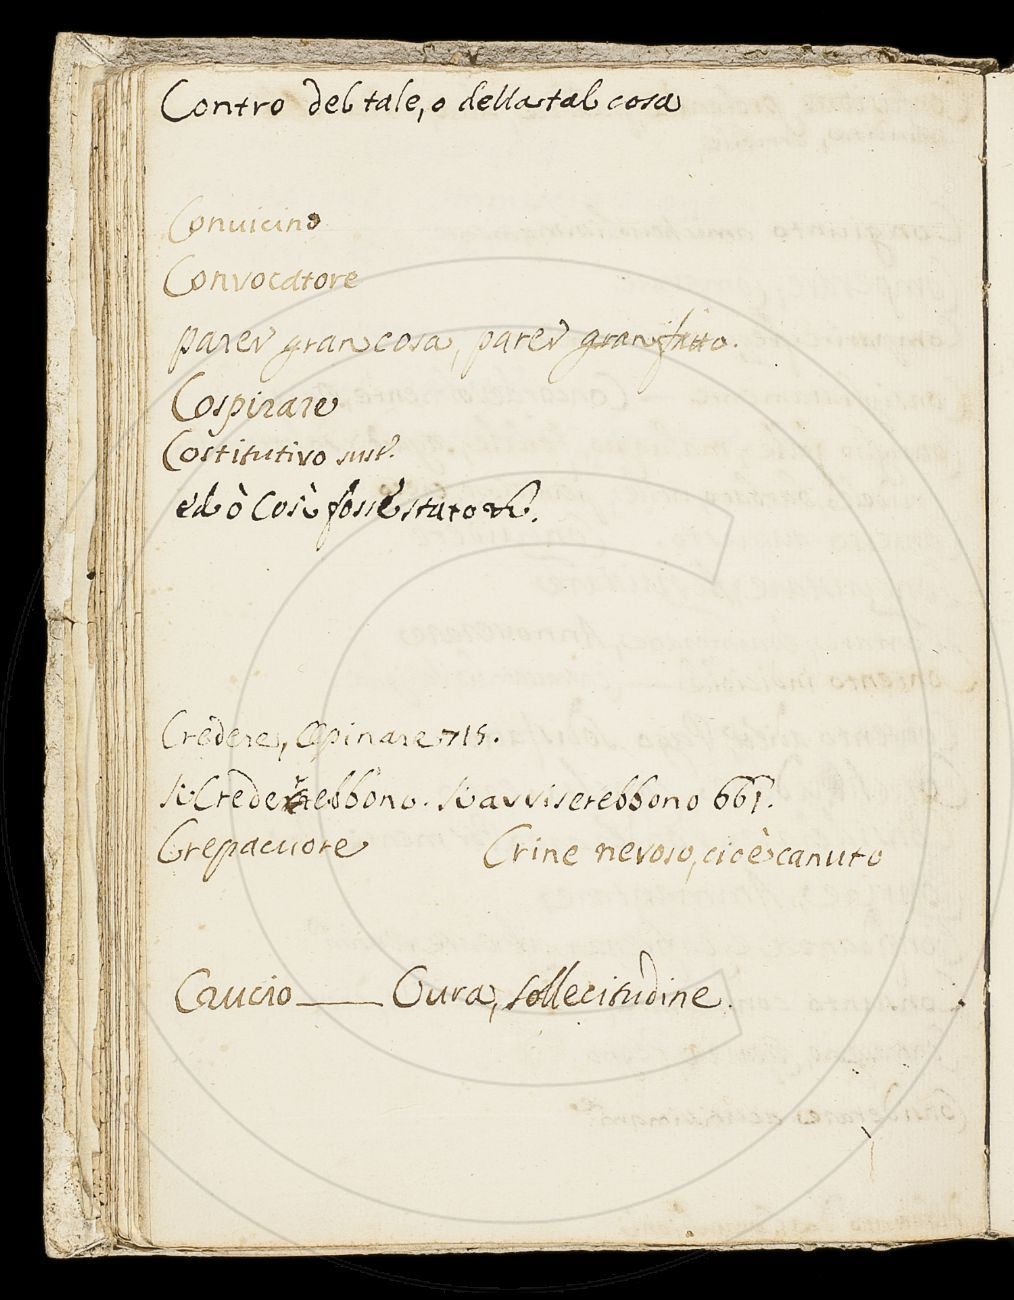 Contro del tale, o della tal cosa
Convicino
Convocatore
parer gran cosa, parer gran fatto.
Cospirare
Costitutivo sust.
ed ò Così fosse stato
Credere, Opinare 715.
si Crederebbono. si avviserebbono 661.
Crepacuore Crine nevoso, cioè canuto
Cruccio —— Cura, sollecitudine.